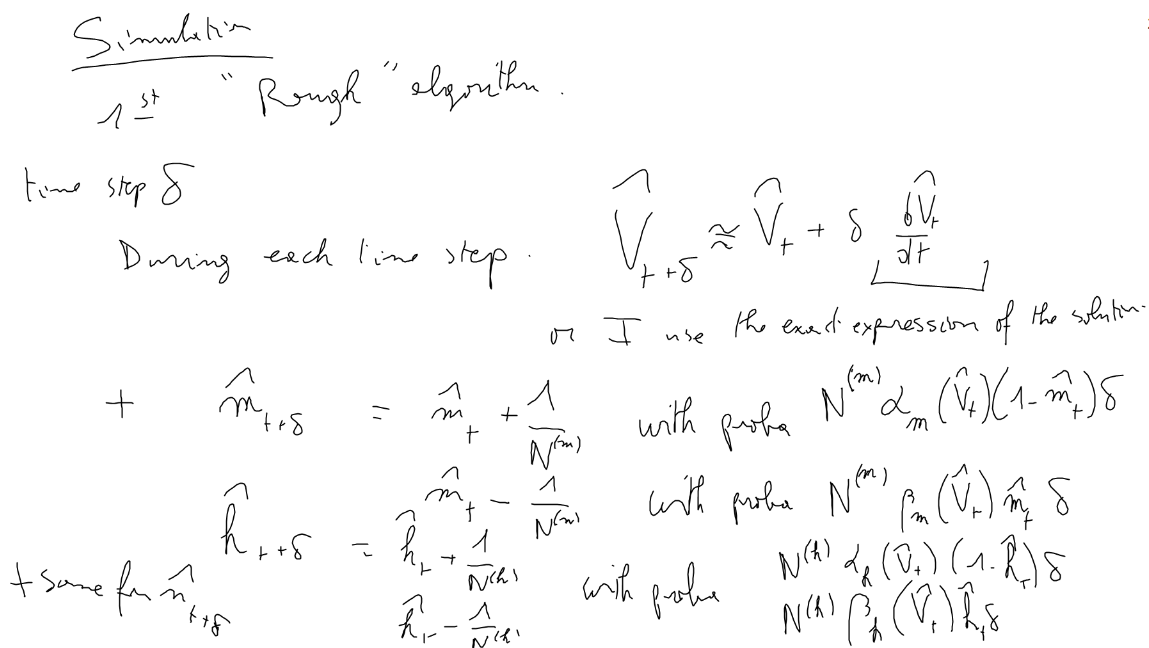 Simulation
1st "Rough" algorithm.
time step δ
During each time step. V̂_{t+δ} ≈ V̂_t + δ dV̂_t/dt
or I use the exact expression of the solution.
+ m̂_{t+δ} = m̂_t + 1/N^{(m)} with proba N^{(m)} α_m (V̂_t)(1 - m̂_t) δ
m̂_t - 1/N^{(m)} with proba N^{(m)} β_m (V̂_t) m̂_t δ
ĥ_{t+δ} = ĥ_t + 1/N^{(h)} with proba N^{(h)} α_h (V̂_t) (1 - ĥ_t) δ
+ same for n̂_{t+δ} ĥ_t - 1/N^{(h)} N^{(h)} β_h (V̂_t) ĥ_t δ